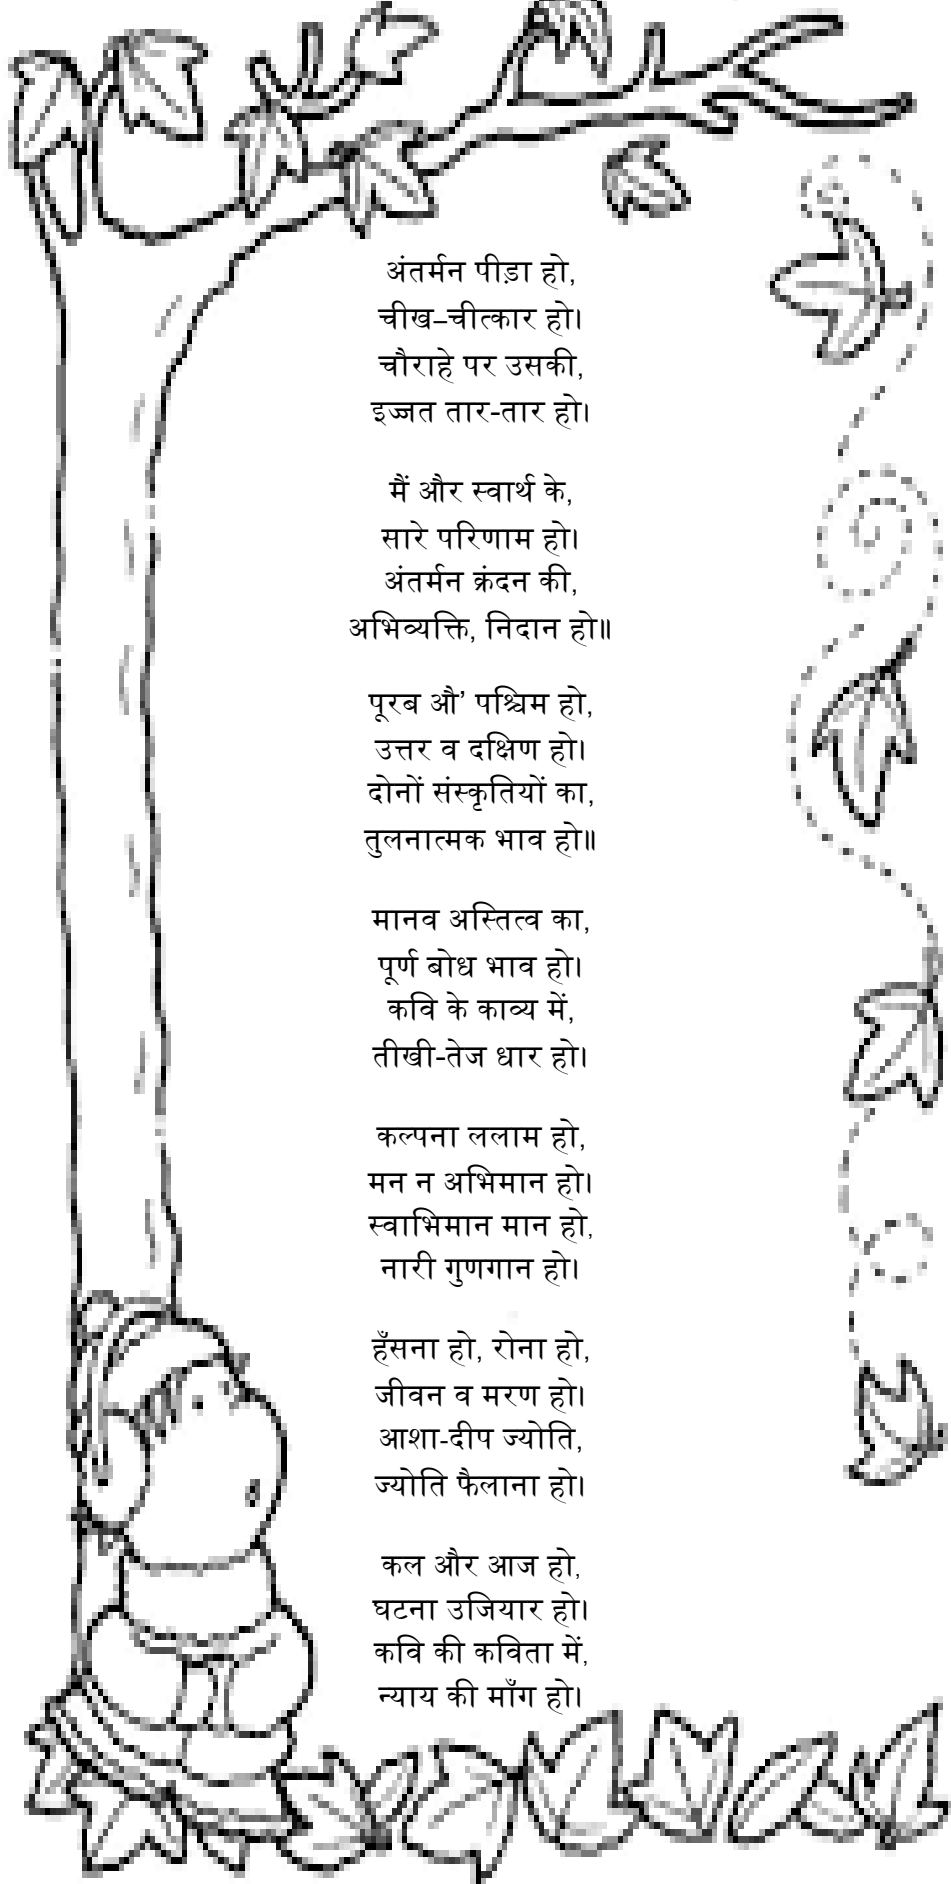 अंतर्मन पीड़ा हो,
चीख–चीत्कार हो।
चौराहे पर उसकी,
इज्जत तार-तार हो।
मैं और स्वार्थ के,
सारे परिणाम हो।
अंतर्मन क्रंदन की,
अभिव्यक्ति, निदान हो॥
पूरब औ’ पश्चिम हो,
उत्तर व दक्षिण हो।
दोनों संस्कृतियों का,
तुलनात्मक भाव हो॥
मानव अस्तित्व का,
पूर्ण बोध भाव हो।
कवि के काव्य में,
तीखी-तेज धार हो।
कल्पना ललाम हो,
मन न अभिमान हो।
स्वाभिमान मान हो,
नारी गुणगान हो।
हँसना हो, रोना हो,
जीवन व मरण हो।
आशा-दीप ज्योति,
ज्योति फैलाना हो।
कल और आज हो,
घटना उजियार हो।
कवि की कविता में,
न्याय की माँग हो।